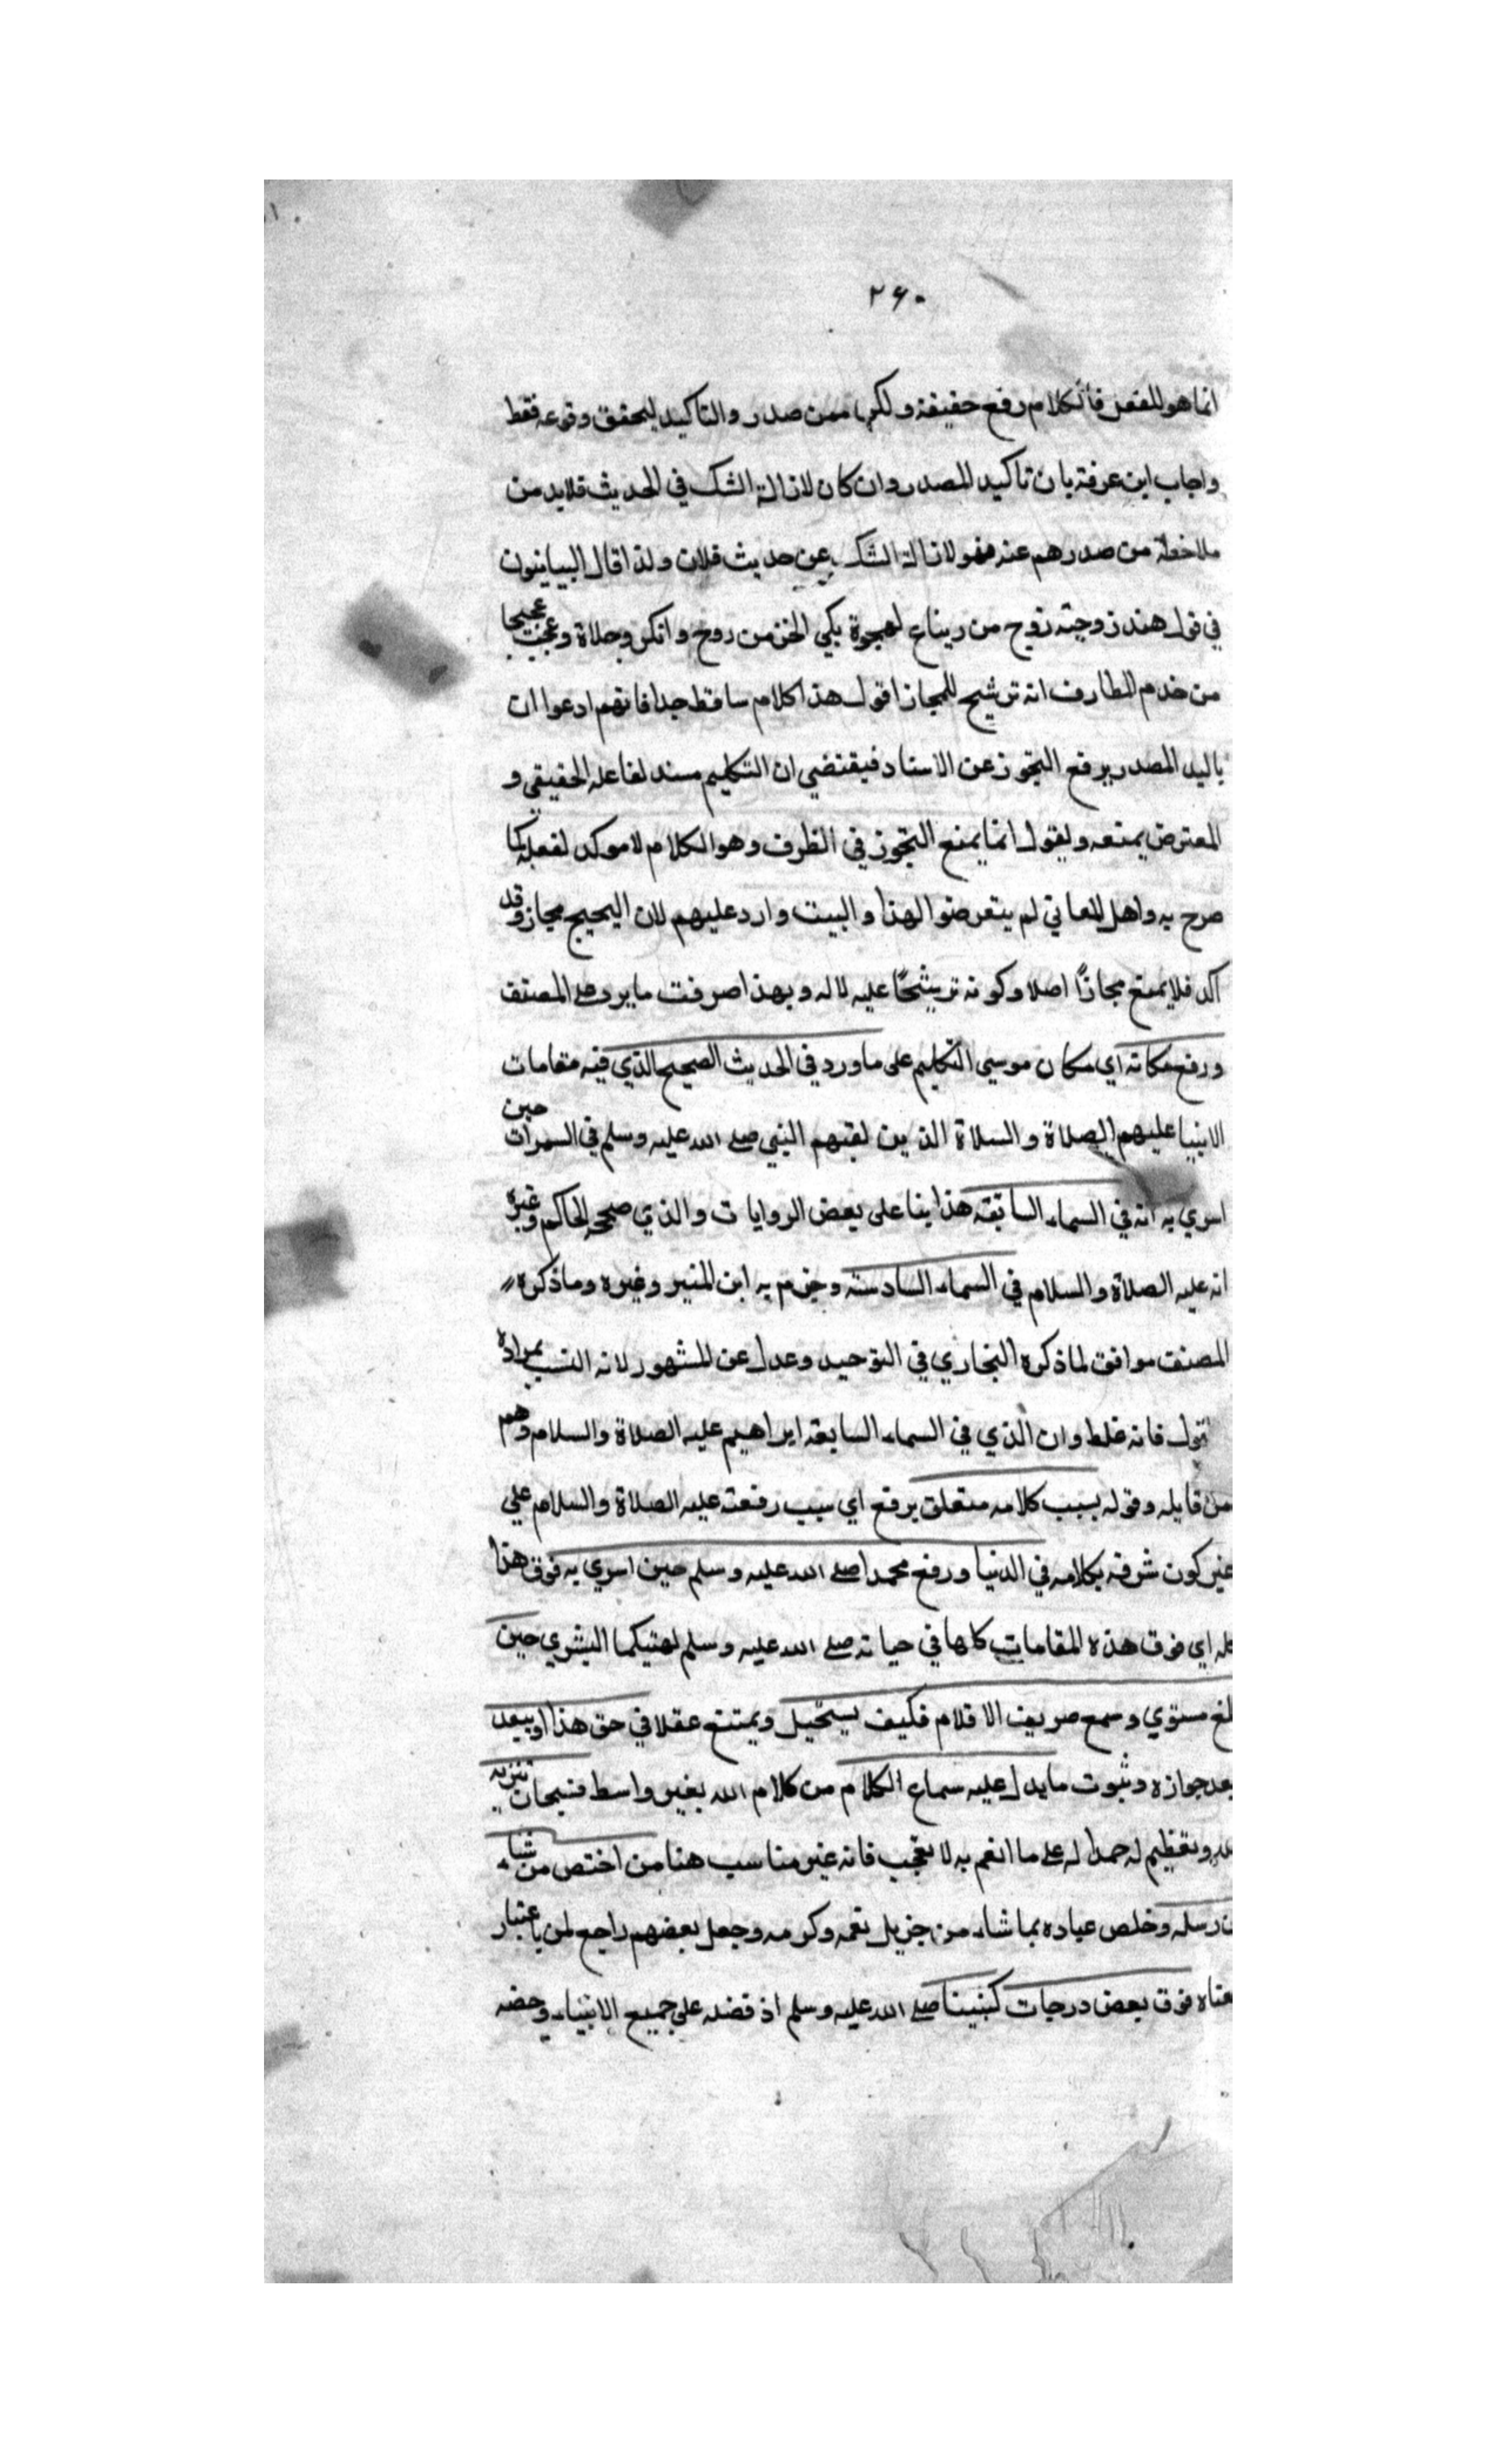 ٢٦٠
انما هو للفعل فالكلام رفع حقيقة ولكن ممن صدر والتاكيد لتحقق وقوعه فقط
واجاب ابن عرفة بان تاكيد المصدر وان كان لازالة الشك في الحديث فلابد من
ملاحظة من صدر هم عنه فهو لازالة الشك عن حديث فلان ولذا قال البيانيون
في قول هند زوجته روح من زنباع لهجوة بكي الخز من روح وانكر وجلاة وعجت عجيجا
من خدم المطارف انه ترشيح للمجاز اقول هذا كلام ساقط جدا فانهم ادعوا ان
تاليد المصدر يرفع التجوز عن الاسناد فيقتضي ان التكليم مسند لفاعله الحقيقي و
المعترض يمنعه ويقول انما يمنع التجوز في الظرف وهو الكلام لا موكد لفعله كما
صرح به واهل المعاني لم يتعرضوا لهذا والبيت وارد عليهم لان العجيج مجاز وقد
اكد فلا يمنع مجازًا اصلا وكونه ترشيحًا عليه لا له وبهذا صرفت ما يرد على المصنف
ورفع مكانه اي مكان موسي التكليم على ما ورد في الحديث الصحيح الذي فيه مقامات
الانبيا عليهم الصلاة والسلاة الذين لقيهم النبي صلى الله عليه وسلم في السموات حين
اسري به انه في السماء السابقة هذا بنا على بعض الروايات والذي صححه الحاكم وغيره
انه عليه الصلاة والسلام في السماء السادسة وجزم به ابن المنير وغيره وما ذكره
المصنف موافق لما ذكره البخاري في التوحيد وعدل عن المشهور لانه انسب بمراده
تقول فانه غلط وان الذي في السماء السابعة ابراهيم عليه الصلاة والسلام وهم
من قايله وقوله بسبب كلامه متعلق برفع اي سبب رفعته عليه الصلاة والسلام علي
غير كون شرفه بكلامه في الدنيا ورفع محمدا صلى الله عليه وسلم حين اسري به فوق هذا
كله اي فوق هذه المقامات كلها في حياته صلى الله عليه وسلم لهيكما البشري حين
بلغ مستوي وسمع صريف الاقلام فكيف يستحيل ويمتنع عقلا في حق هذا او يبعد
بعد جوازه وثبوت ما يدل عليه سماع الكلام من كلام الله بغير واسط فسبحان تنزيه
لله وتعظيم له حمدا له على ما انعم به لا تعجب فانه غير مناسب هنا من اختص من شاء
من رسله وخلص عباده بما شاء من جزيل نعمه وكرمه وجعل بعضهم راجع لمن باعتبار
معناه فوق بعض درجات كنبينا صلى الله عليه وسلم اذ فضله علي جميع الانبياء وخصه